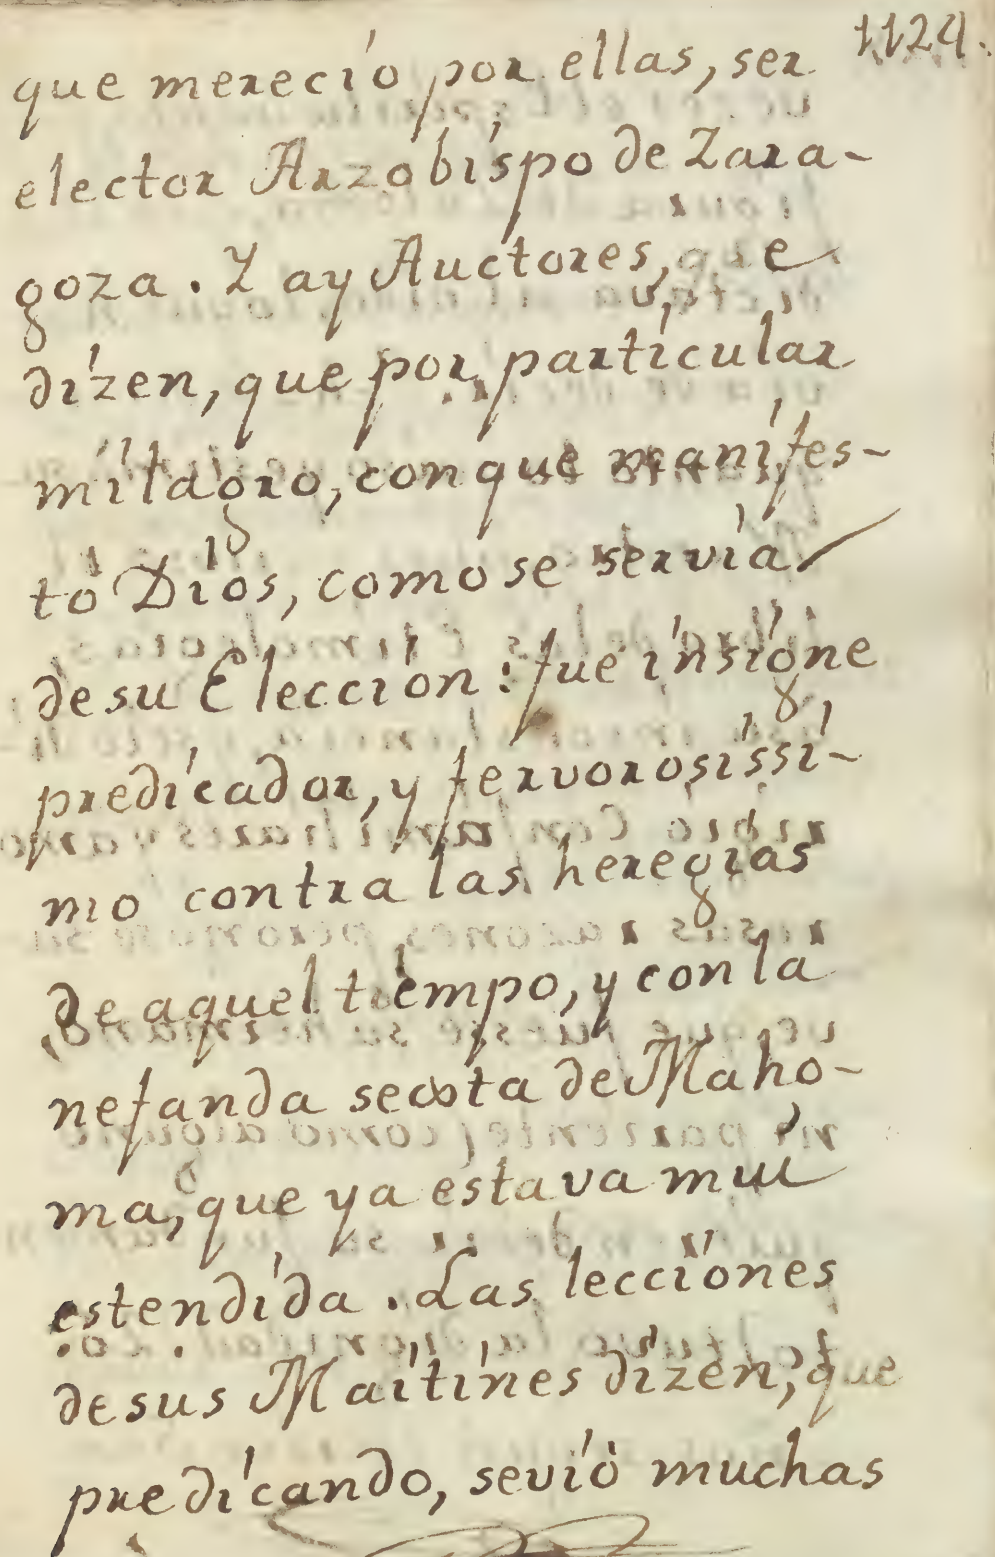 1124.
que merecio por ellas, ser
elector Arzobispo de Zara-
goza. Y ay Auctores, que
dizen, que por particular
milagro, con que manifes-
tò Dios, como se servia
de su Eleccion: fue insigne
predicador, y fervorosissi-
mo contra las heregias
de aquel tiempo, y con la
nefanda secta de Maho-
ma, que ya estava mui
estendida. Las lecciones
de sus Maitines dizen, que
predicando, se viò muchas